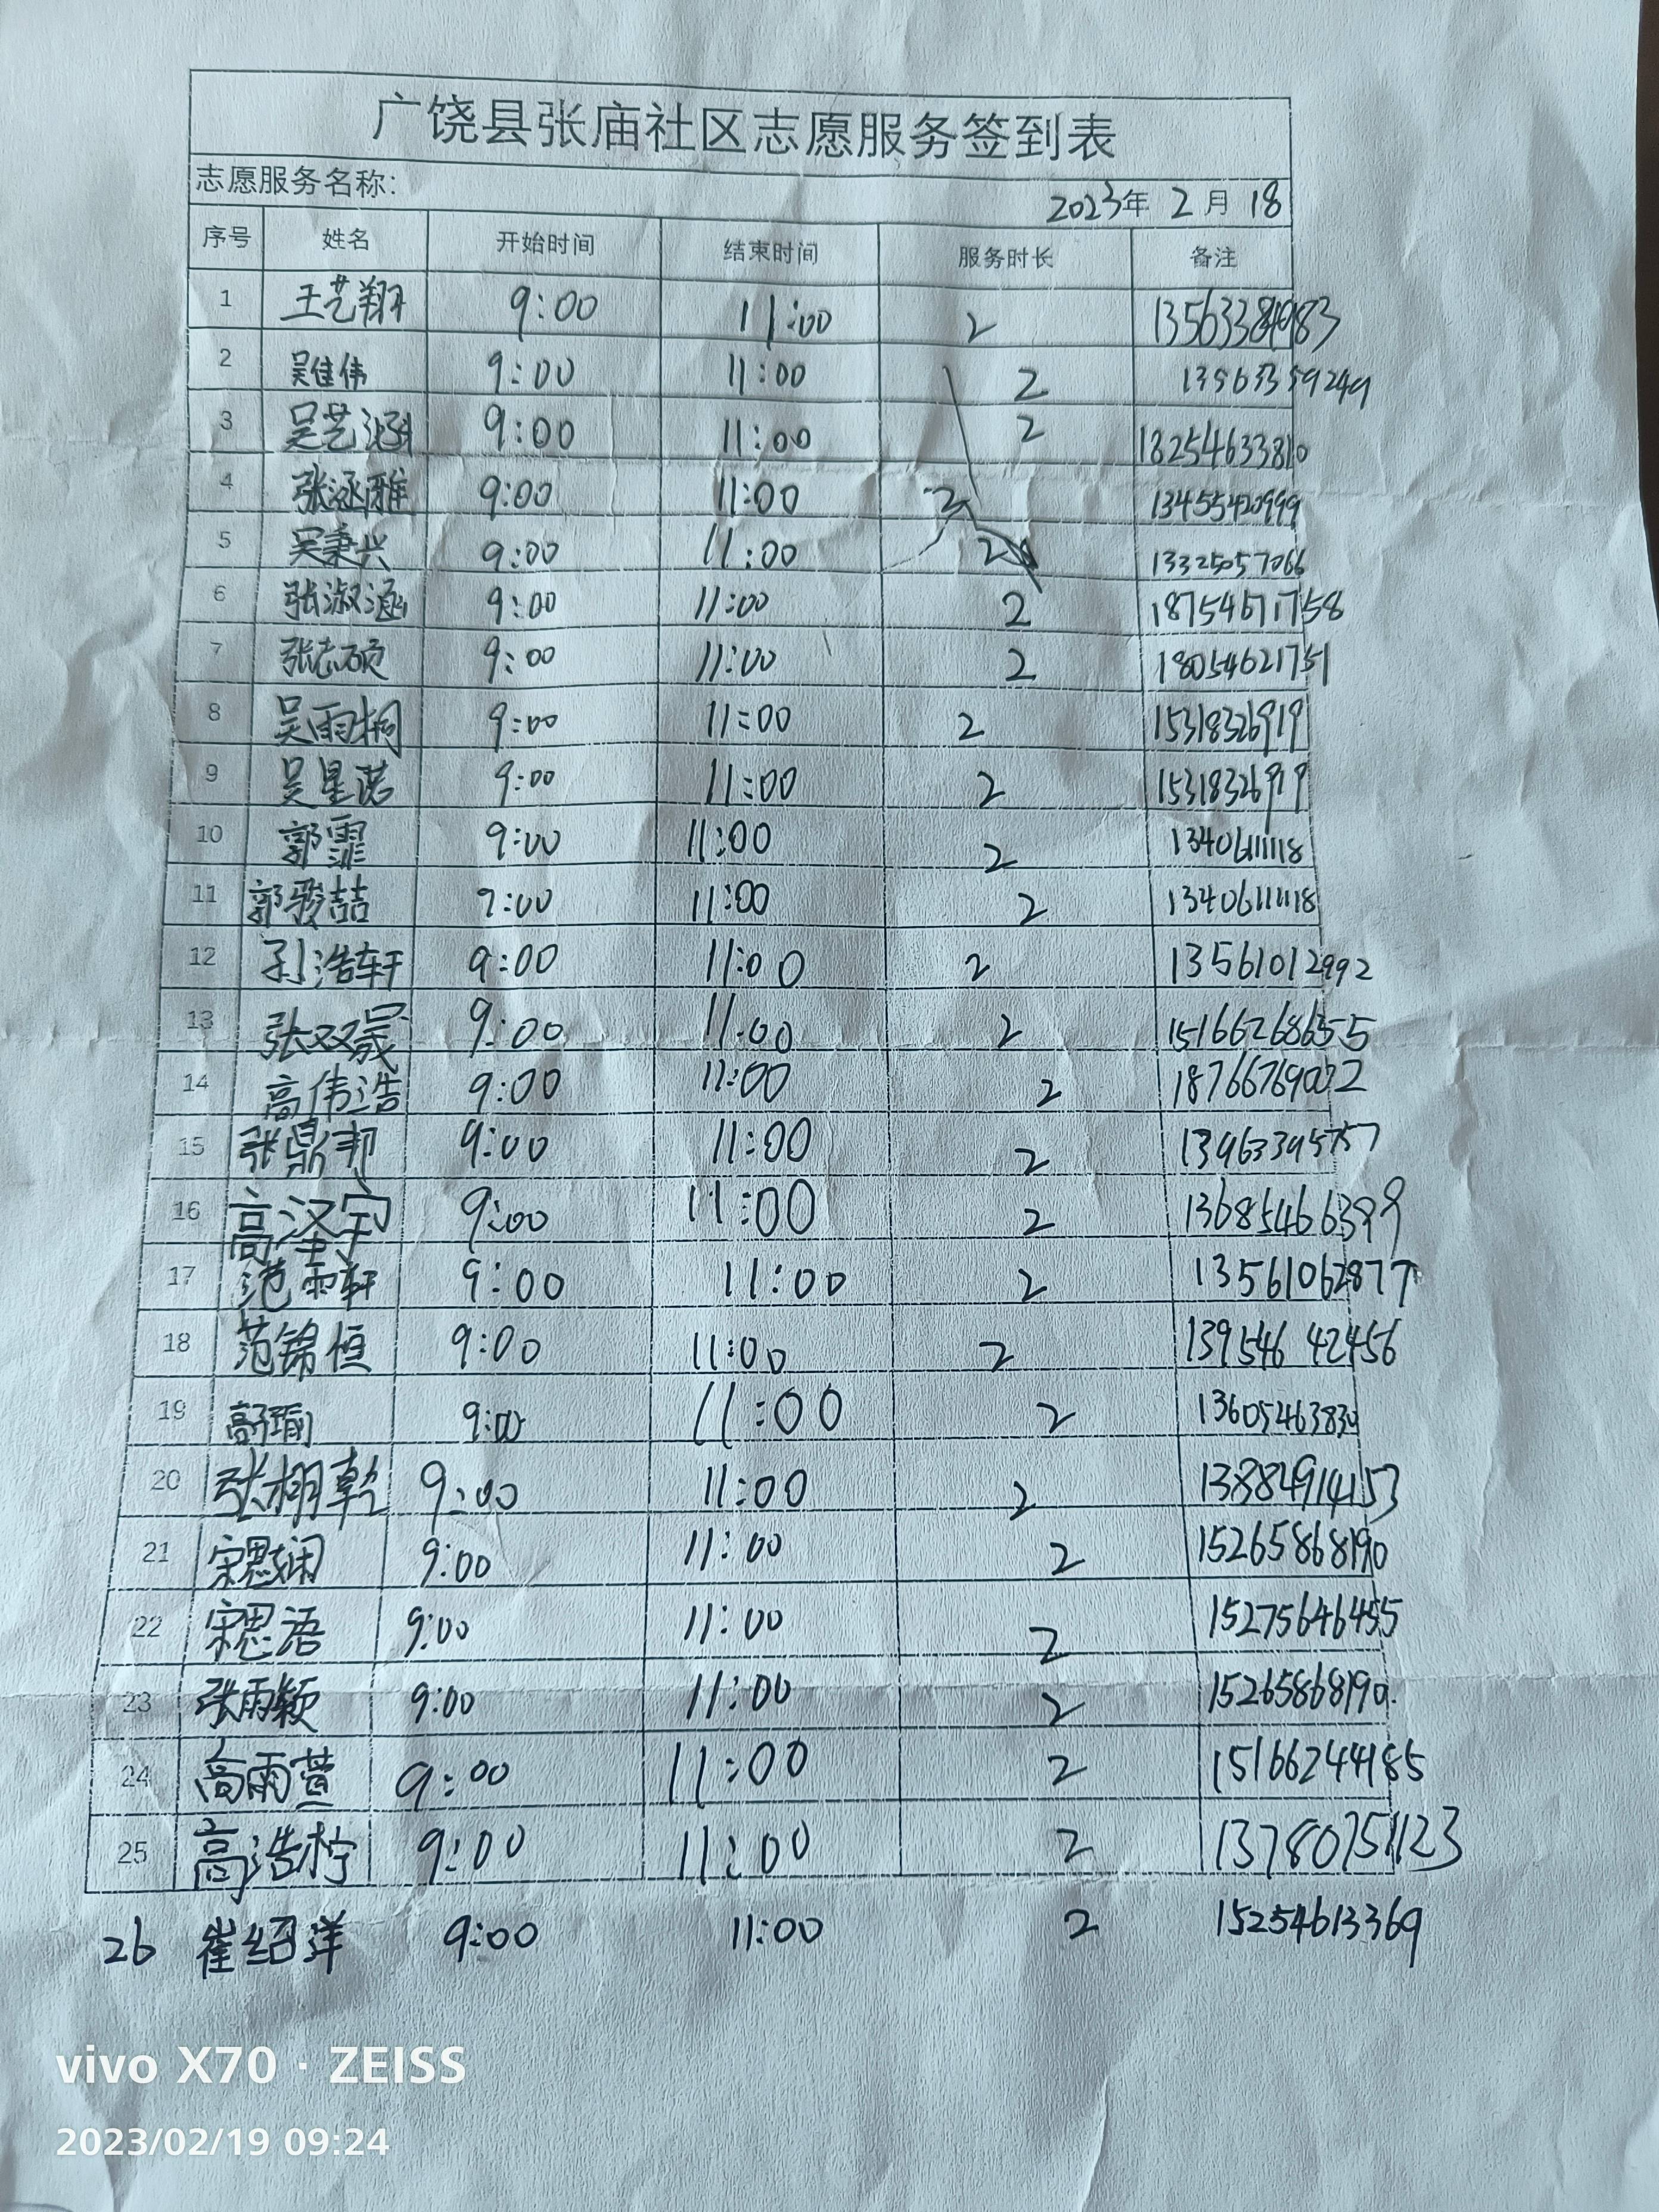 广饶县张庙社区志愿服务签到表
志愿服务名称: 2023年 2月 18
序号 姓名 开始时间 结束时间 服务时长 备注
1 王艺翔 9:00 11:00 2
2 吴佳伟 9:00 11:00 2 13563359249
3 吴艺涵 9:00 11:00 2 18254633810
4 张涵雅 9:00 11:00 2 13455420999
5 吴秉兴 9:00 11:00 2 13325057066
6 张淑涵 9:00 11:00 2 18754671758
7 张志硕 9:00 11:00 2 18054621751
8 吴雨桐 9:00 11:00 2 15318326919
9 吴星诺 9:00 11:00 2 15318326919
10 郭霏 9:00 11:00 2 13406111118
11 郭骏喆 9:00 11:00 2 13406111118
12 孙浩轩 9:00 11:00 2 13561012992
13 张双晟 9:00 11:00 2
14 高伟浩 9:00 11:00 2 18766769002
15 张鼎邦 9:00 11:00 2 13963395757
16 高泽宇 9:00 11:00 2 13685466399
17 范雨轩 9:00 11:00 2 13561062877
18 范锦恒 9:00 11:00 2 139546 42456
19 高子瑜 9:00 11:00 2 13605463830
20 张栩乾 9:00 11:00 2
21 宋思娴 9:00 11:00 2 15265868190
22 宋思语 9:00 11:00 2 15275646455
23 张雨颖 9:00 11:00 2 15265868190
24 高雨萱 9:00 11:00 2 15166244185
25 高浩柠 9:00 11:00 2 13780751123
26 崔绍洋 9:00 11:00 2 15254613369
vivo X70 · ZEISS
2023/02/19 09:24